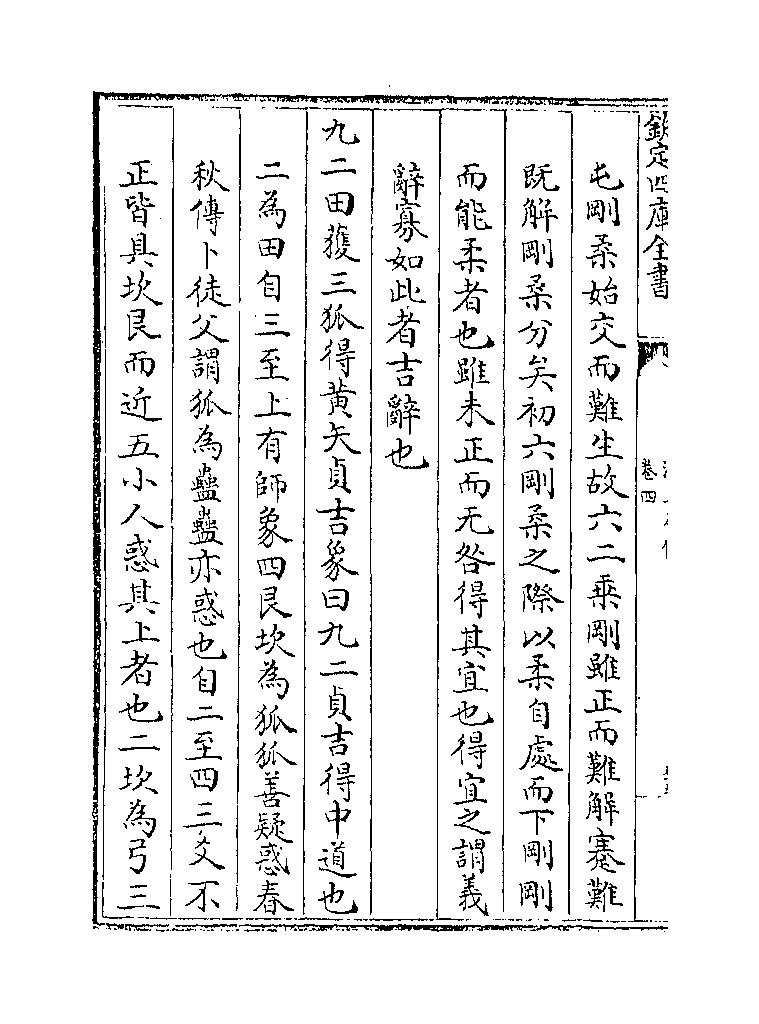 欽定四庫全書
卷四
屯剛柔始交而難生故六二乗剛雖正而難解蹇難
既解剛柔分矣初六剛柔之際以柔自處而下剛剛
而能柔者也雖未正而无咎得其宜也得宜之謂義
辭寡如此者吉辭也
九二田獲三狐得黃矢貞吉象曰九二貞吉得中道也
二為田自三至上有師象四艮坎為狐狐善疑惑春
秋傳卜徒父謂狐為蠱蠱亦惑也自二至四三爻不
正皆具坎艮而近五小人惑其上者也二坎為弓三